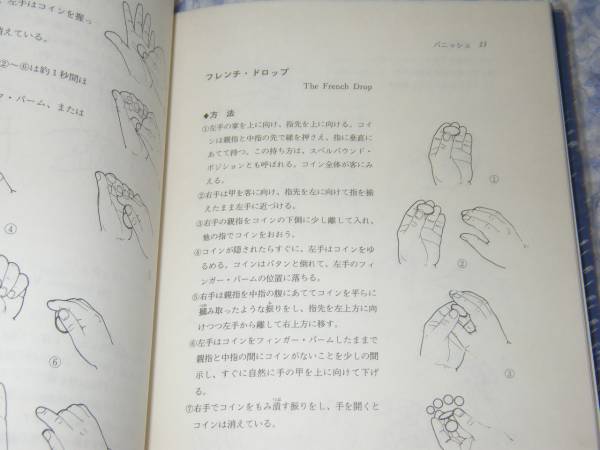 左手はコインを握っ
消えている。
②〜⑥は約1秒間は
マ・パーム、または
④
⑥
パニッシュ 21
フレンチ・ドロップ
The French Drop
◆方 法
①左手の掌を上に向け、指先を上に向ける。コイ
ンは親指と中指の先で縁を押さえ、指に垂直に
あてて持つ。この持ち方は、スペルバウンド・
ポジションとも呼ばれる。コイン全体が客にみ
える。
②右手は甲を客に向け、指先を左に向けて指を揃
えたまま左手に近づける。
③右手の親指をコインの下側に少し離して入れ、
他の指でコインをおおう。
④コインが隠されたらすぐに、左手はコインをゆ
るめる。コインはパタンと倒れて、左手のフィ
ンガー・パームの位置に落ちる。
⑤右手は親指を中指の腹にあててコインを平らに
摑み取ったような振りをし、指先を左上方に向
けつつ左手から離して右上方に移す。
⑥左手はコインをフィンガー・パームしたままで
親指と中指の間にコインがないことを少しの間
示し、すぐに自然に手の甲を上に向けて下げ
る。
⑦右手でコインをもみ潰す振りをし、手を開くと
コインは消えている。
①
②
③